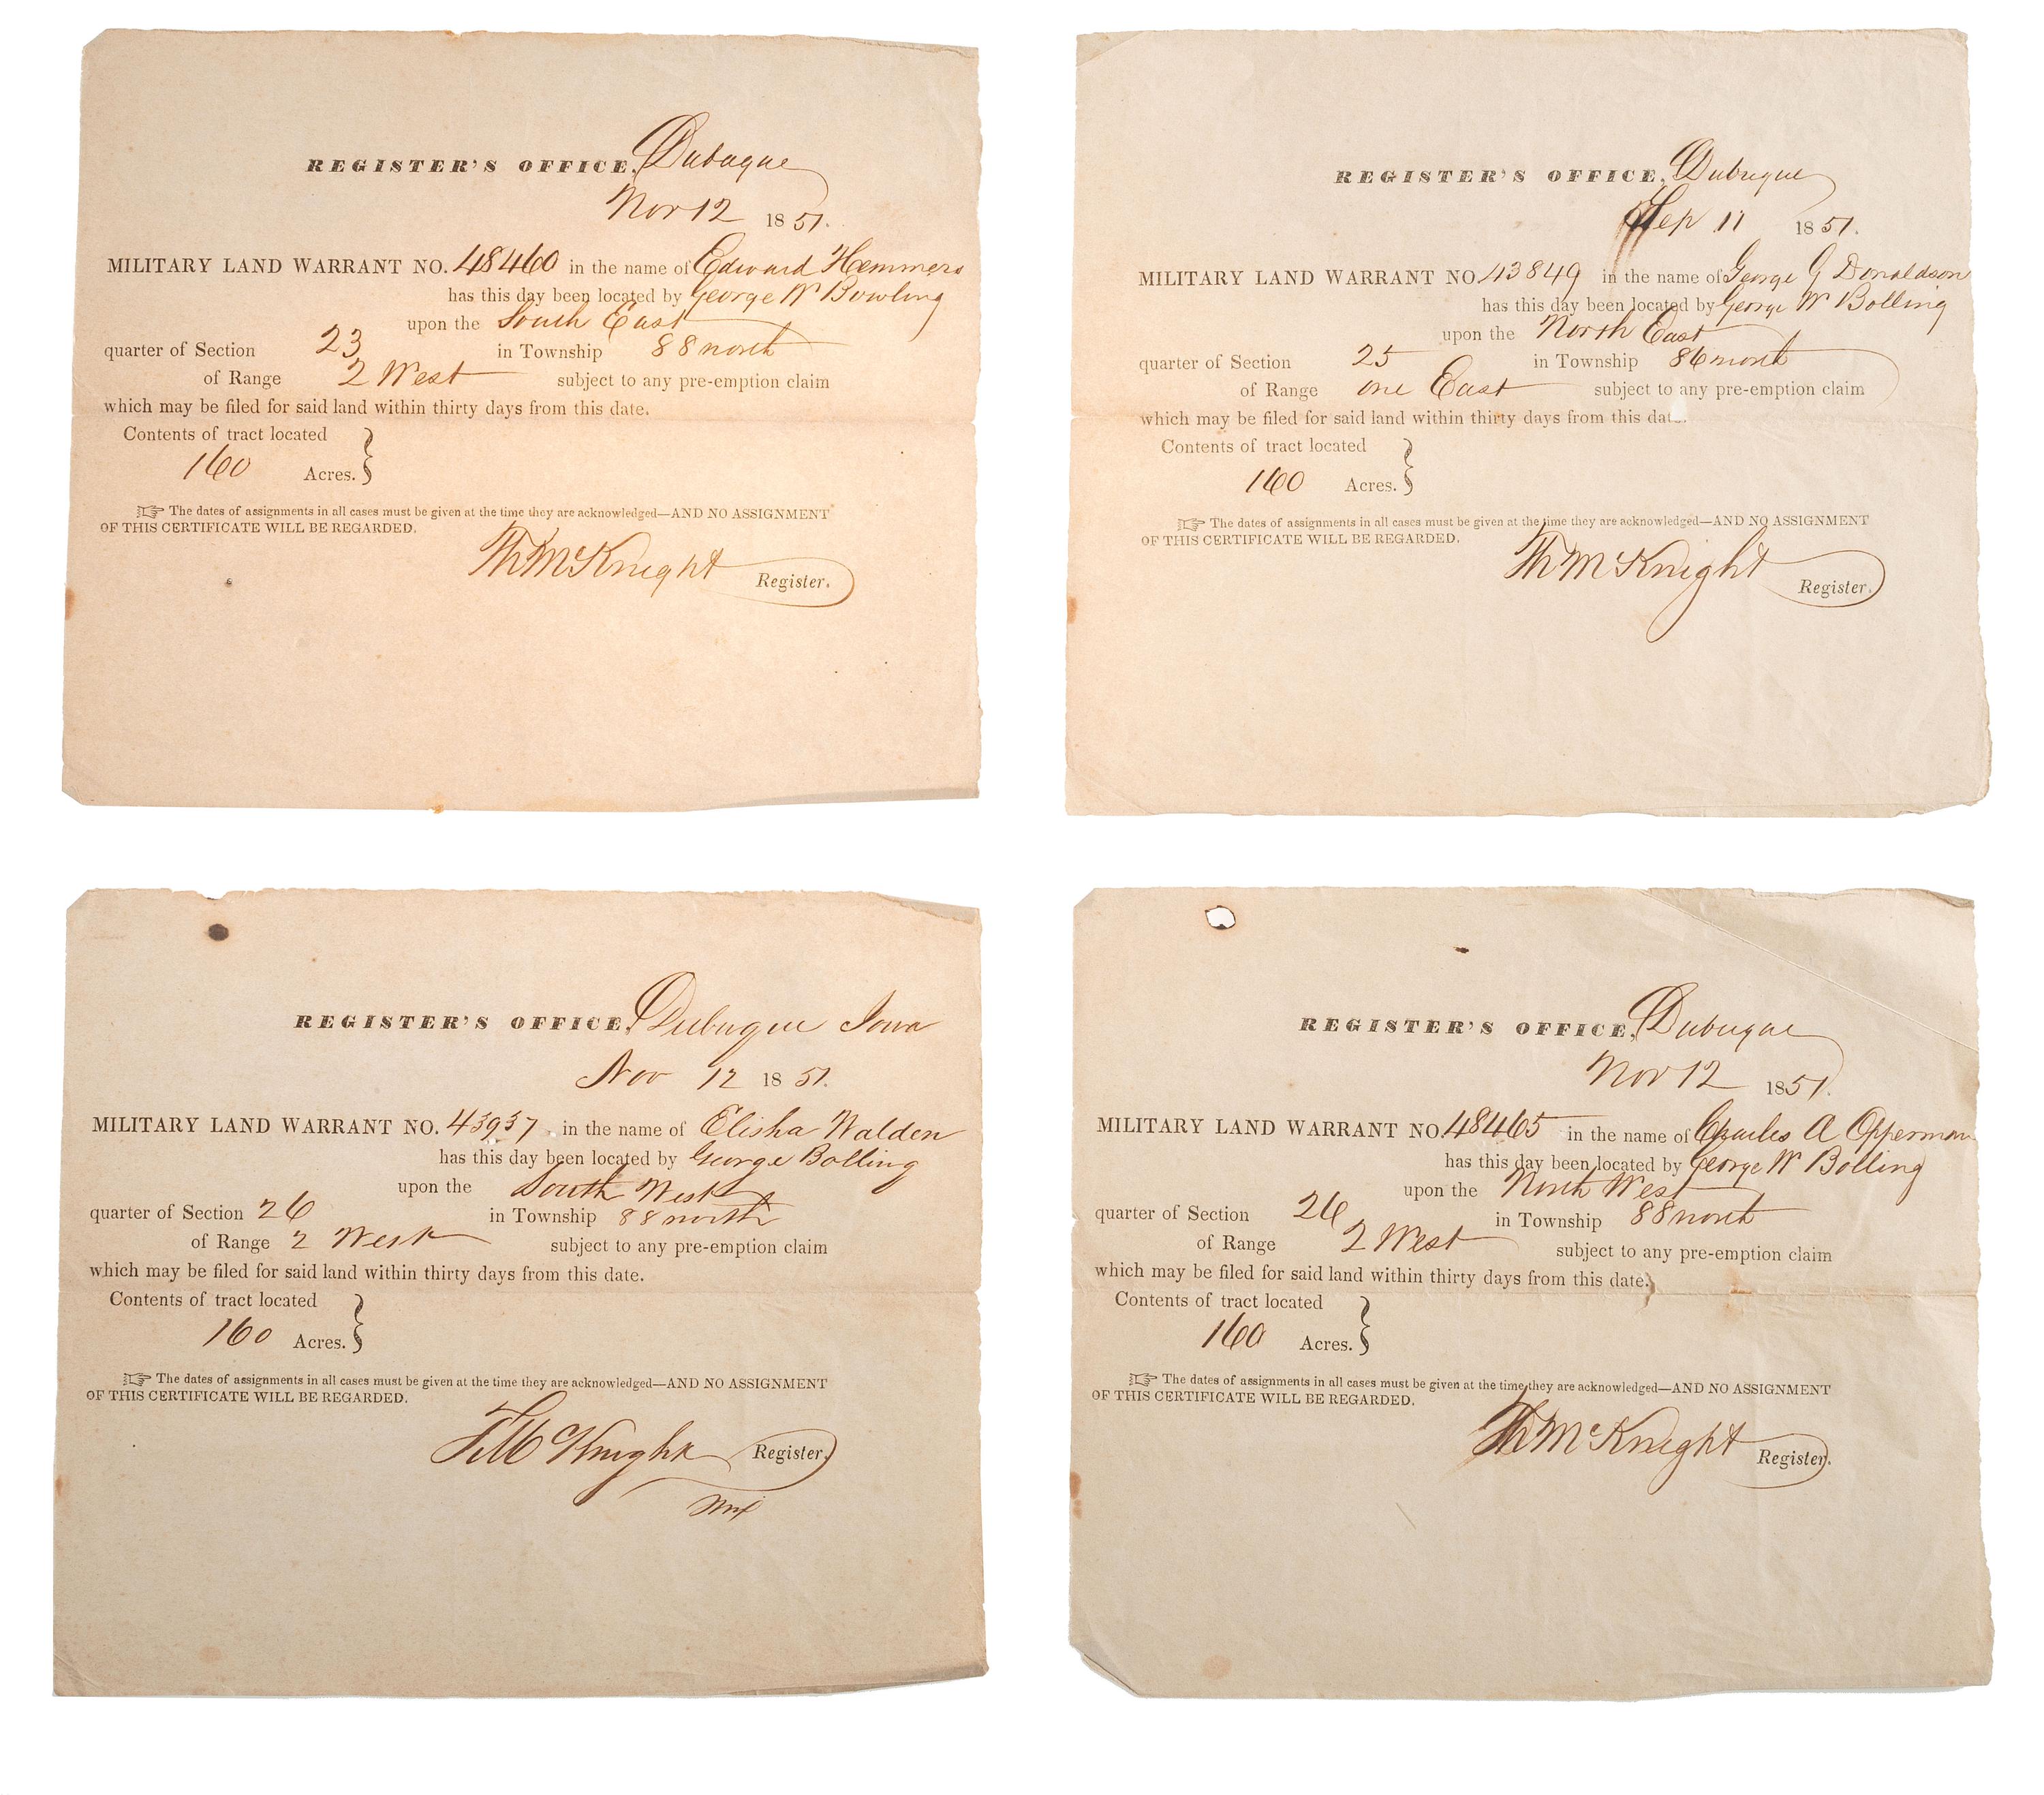 REGISTER'S OFFICE, Dubuque
Nov 12 1851.
MILITARY LAND WARRANT NO. 48460 in the name of Edward Hemmers
has this day been located by George W Bowling
upon the South East
quarter of Section 23 in Township 88 north
of Range 2 West subject to any pre-emption claim
which may be filed for said land within thirty days from this date.
Contents of tract located
160 Acres.
The dates of assignments in all cases must be given at the time they are acknowledged—AND NO ASSIGNMENT
OF THIS CERTIFICATE WILL BE REGARDED.
Th McKnight Register.
REGISTER'S OFFICE, Dubuque
Sep 11 1851.
MILITARY LAND WARRANT NO 43849 in the name of George G Donaldson
has this day been located by George W Bolling
upon the North East
quarter of Section 25 in Township 86 north
of Range one East subject to any pre-emption claim
which may be filed for said land within thirty days from this dat
Contents of tract located
160 Acres.
The dates of assignments in all cases must be given at the time they are acknowledged—AND NO ASSIGNMENT
OF THIS CERTIFICATE WILL BE REGARDED.
Th McKnight Register.
REGISTER'S OFFICE, Dubuque Iowa
Nov 12 1851.
MILITARY LAND WARRANT NO. 43937 in the name of Elisha Walden
has this day been located by George Bolling
upon the South West
quarter of Section 26 in Township 88 north
of Range 2 West subject to any pre-emption claim
which may be filed for said land within thirty days from this date.
Contents of tract located
160 Acres.
The dates of assignments in all cases must be given at the time they are acknowledged—AND NO ASSIGNMENT
OF THIS CERTIFICATE WILL BE REGARDED.
McKnight Register.
REGISTER'S OFFICE, Dubuque
Nov 12 1851.
MILITARY LAND WARRANT NO. 48465 in the name of Charles A Opperman
has this day been located by George W Bolling
upon the North West
quarter of Section 26 in Township 88 north
of Range 2 West subject to any pre-emption claim
which may be filed for said land within thirty days from this date.
Contents of tract located
160 Acres.
The dates of assignments in all cases must be given at the time they are acknowledged—AND NO ASSIGNMENT
OF THIS CERTIFICATE WILL BE REGARDED.
Th McKnight Register.